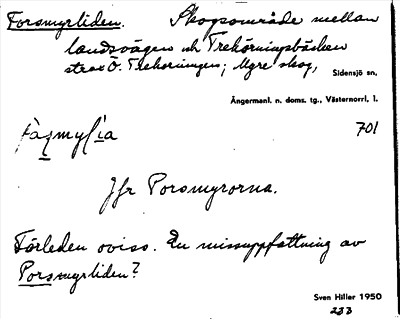 Forsmyrliden. Skogsområde mellan
landsvägen och Trehörningsbäcken
strax Ö. Trehörningen; Ygre skog,
Sidensjö sn,
Ångermanl. n. doms. tg., Västernorrl. l.
701
Jfr Porsmyrorna.
Förleden oviss. En missuppfattning av
Porsmyrliden?
Sven Hiller 1950
233